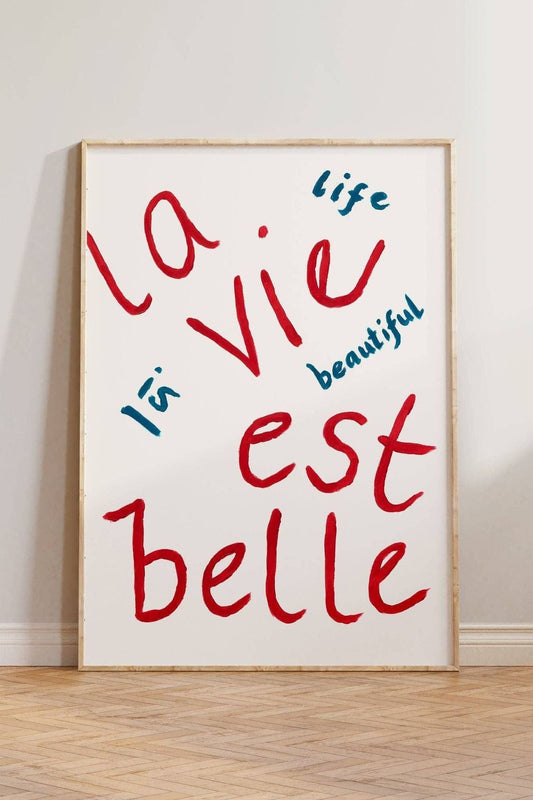 la
life
vie
is
beautiful
est
belle